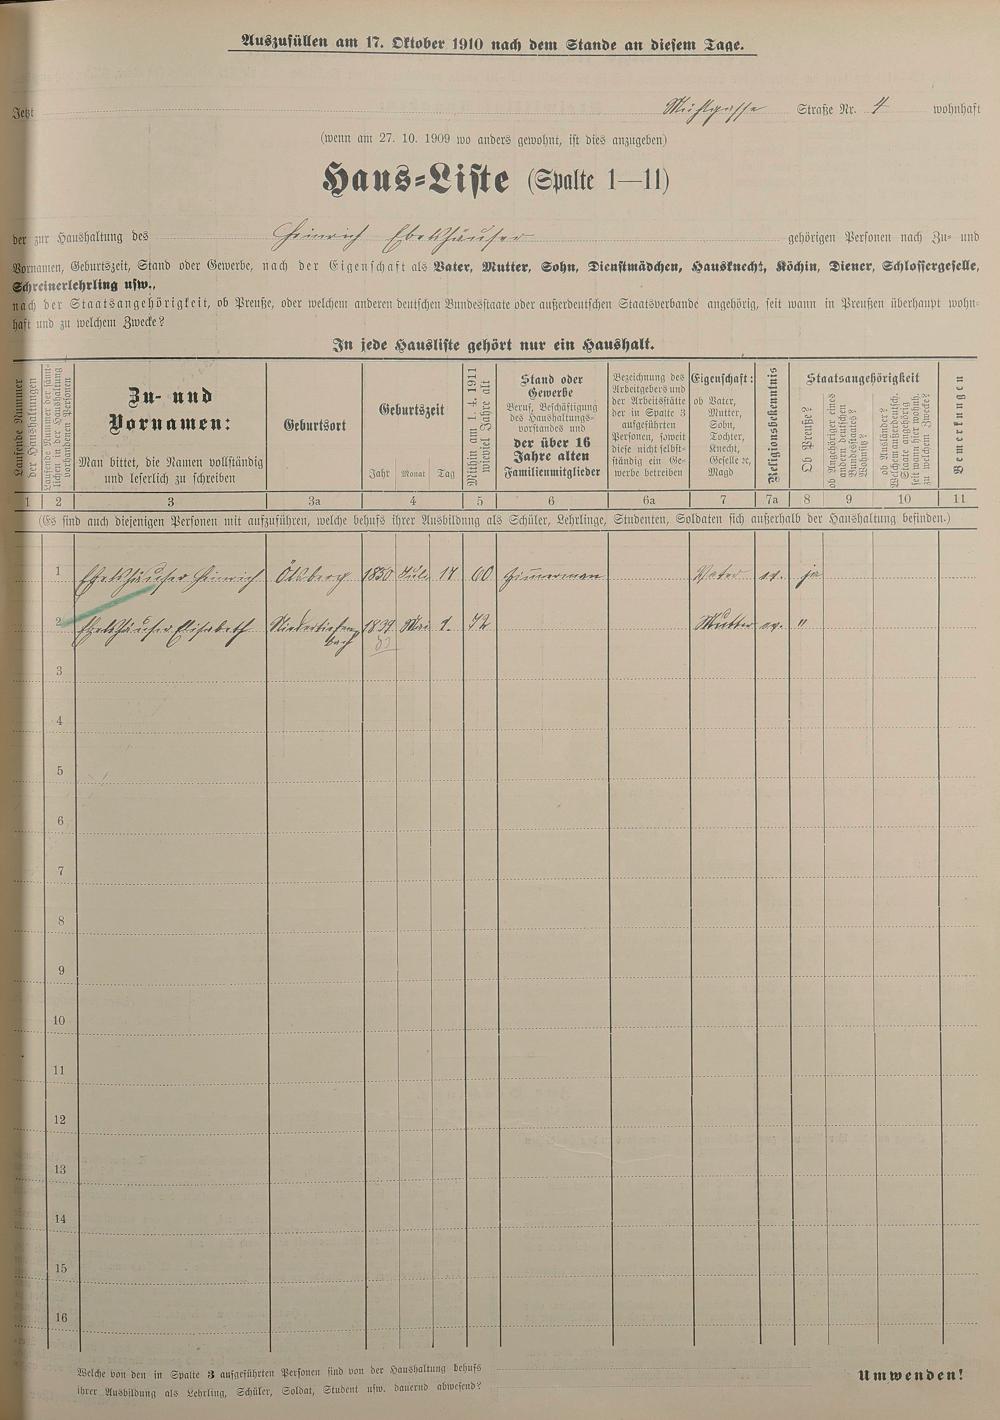 Auszufüllen am 17. Oktober 1910 nach dem Stande an diesem Tage.
Jetzt Mühlgasse Straße Nr. 4 wohnhaft
(wenn am 27. 10. 1909 wo anders gewohnt, ist dies anzugeben)
Haus-Liste (Spalte 1—11)
der zur Haushaltung des Heinrich Ebelshäuser gehörigen Personen nach Zu- und
Vornamen, Geburtszeit, Stand oder Gewerbe, nach der Eigenschaft als Vater, Mutter, Sohn, Dienstmädchen, Hausknecht, Köchin, Diener, Schlossergeselle,
Schreinerlehrling usw.,
nach der Staatsangehörigkeit, ob Preuße, oder welchem anderen deutschen Bundesstaate oder außerdeutschen Staatsverbande angehörig, seit wann in Preußen überhaupt wohn-
haft und zu welchem Zwecke?
In jede Hausliste gehört nur ein Haushalt.
Laufende Nummer
der Haushaltungen
Laufende Nummer der sämt-
lichen in der Haushaltung
vorhandenen Personen
Zu- und
Vornamen:
Man bittet, die Namen vollständig
und leserlich zu schreiben
Geburtsort
Geburtszeit
Jahr Monat Tag
Mithin am 1. 4. 1911
wieviel Jahre alt
Stand oder
Gewerbe
Beruf, Beschäftigung
des Haushaltungs-
vorstandes und
der über 16
Jahre alten
Familienmitglieder
Bezeichnung des
Arbeitgebers und
der Arbeitsstätte
der in Spalte 3
aufgeführten
Personen, soweit
diese nicht selbst-
ständig ein Ge-
werbe betreiben
Eigenschaft:
ob Vater,
Mutter,
Sohn,
Tochter,
Knecht,
Geselle ꝛc,
Magd
Religionsbekenntnis
Staatsangehörigkeit
Ob Preuße?
ob Angehöriger eines
andern deutschen
Bundesstaates?
Wohnsitz?
ob Ausländer?
Welchem außerdeutsch.
Staate angehörig
seit wann hier wohnh.
zu welchem Zwecke?
Bemerkungen
1 2 3 3a 4 5 6 6a 7 7a 8 9 10 11
(Es sind auch diejenigen Personen mit aufzuführen, welche behufs ihrer Ausbildung als Schüler, Lehrlinge, Studenten, Soldaten sich außerhalb der Haushaltung befinden.)
1 Ebelshäuser Heinrich 1850 Juli 17 60 Zimmerman Vater ev. ja
2 Ebelshäuser Elisabeth Niedertiefen-
bach 1839 Mai 1. 72 Mutter ev. "
3
4
5
6
7
8
9
10
11
12
13
14
15
16
Welche von den in Spalte 3 aufgeführten Personen sind von der Haushaltung behufs
ihrer Ausbildung als Lehrling, Schüler, Soldat, Student usw. dauernd abwesend?
Umwenden!